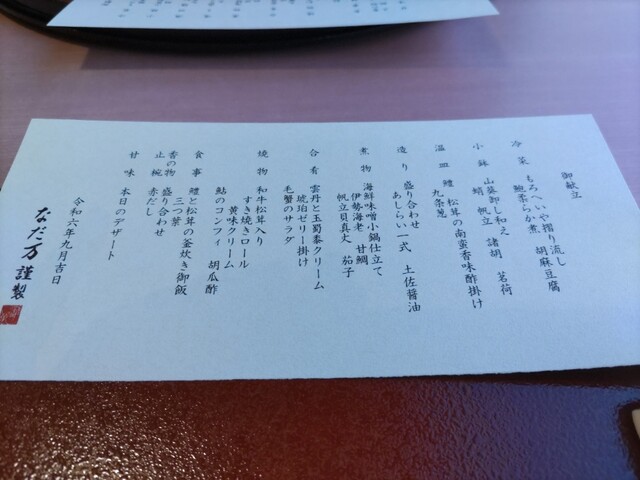 御献立
冷菜 もろへいや摺り流し
鮑柔らか煮 胡麻豆腐
小鉢 山葵卸し和え
蛸 帆立 諸胡 茗荷
温皿 鱧 松茸の南蛮香味酢掛け
九条葱
造り 盛り合わせ
あしらい一式 土佐醤油
煮物 海鮮味噌小鍋仕立て
伊勢海老 甘鯛
帆立貝真丈 茄子
合肴 雲丹と玉蜀黍クリーム
琥珀ゼリー掛け
毛蟹のサラダ
焼物 和牛松茸入り
すき焼きロール
黄味クリーム
鮎のコンフィ 胡瓜酢
食事 鱧と松茸の釜炊き御飯
三つ葉
香の物 盛り合わせ
止椀 赤だし
甘味 本日のデザート
令和六年九月吉日
なだ万 謹製